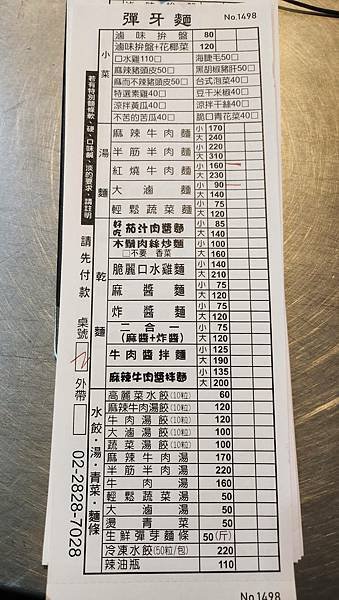 彈牙麵
No.1498
小菜
滷味拚盤 80
滷味拚盤+花椰菜 120
口水雞110□ 海蜇毛50□
麻辣豬頭皮50□ 黑胡椒豬肝50□
麻而不辣豬頭皮50□ 台式泡菜40□
特選素雞40□ 豆干米椒40□
涼拌黃瓜40□ 涼拌干絲40□
不苦的苦瓜40□ 脆口青花菜40□
湯麵
麻辣牛肉麵 小 170 大 240
半筋半肉麵 小 220 大 310
紅燒牛肉麵 小 160 大 230
大滷麵 小 90 大 140
輕鬆蔬菜麵 小 75 大 120
乾麵
好吃茄汁肉醬麵 小 85 大 140
木鬚肉絲炒麵 □不要 香菜 小 100 大 160
脆麗口水雞麵 小 140 大 210
麻醬麵 小 75 大 120
炸醬麵 小 75 大 120
二合一 (麻醬+炸醬) 小 75 大 120
牛肉醬拌麵 小 125 大 190
麻辣牛肉醬拌麵 小 135 大 200
水餃·湯·青菜·麵條
高麗菜水餃(10粒) 60
麻辣牛肉湯餃(10粒) 120
牛肉湯餃(10粒) 120
大滷湯餃(10粒) 100
蔬菜湯餃(10粒) 100
麻辣牛肉湯 170
半筋半肉湯 220
牛肉湯 160
輕鬆蔬菜湯 50
大滷湯 50
燙青菜 50
生鮮彈芽麵條 50(斤)
冷凍水餃(50粒/包) 220
辣油瓶 110
若有特別麵條軟、硬、口味鹹、淡的要求，請註明
請先付款 桌號 外帶□
02-2828-7028
No.1498